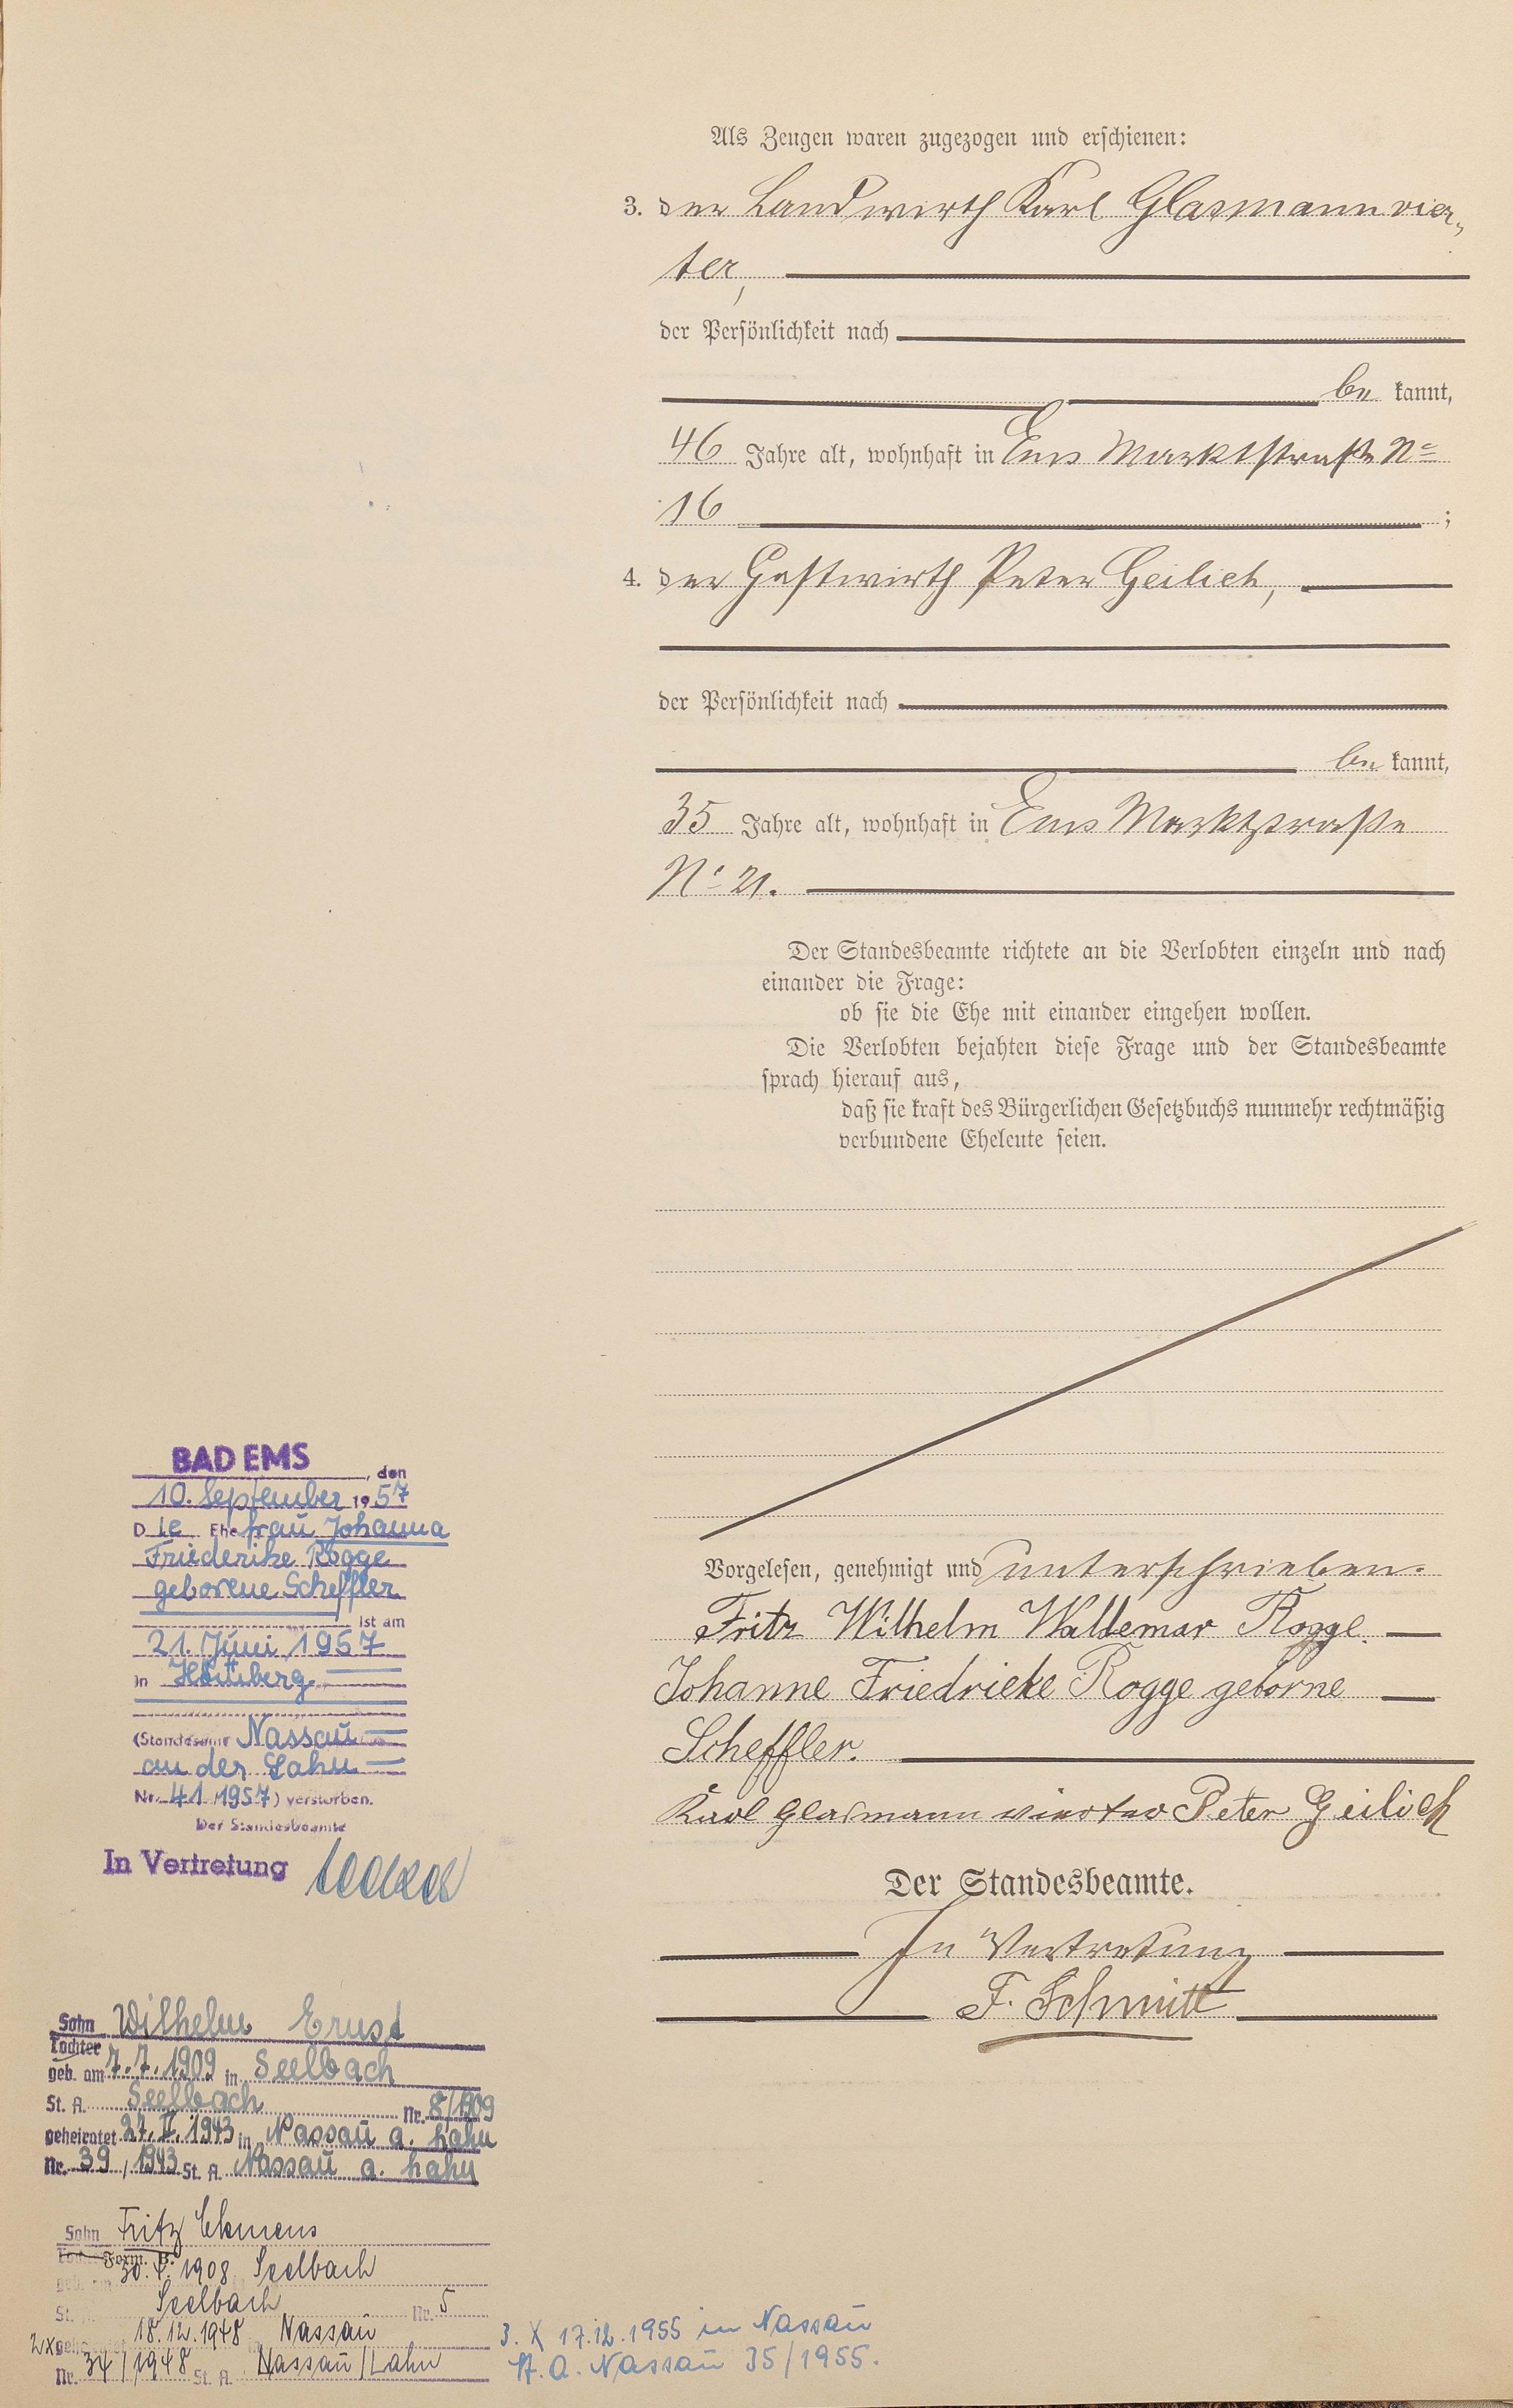 Als Zeugen waren zugezogen und erschienen:
3. der Landwirth Karl Glasmann vier-
ter,
der Persönlichkeit nach
be kannt,
46 Jahre alt, wohnhaft in Ems Marktstraße No
16 ;
4. der Gastwirth Peter Geilich,
der Persönlichkeit nach
be kannt,
35 Jahre alt, wohnhaft in Ems Marktstraße
No 21.
Der Standesbeamte richtete an die Verlobten einzeln und nach
einander die Frage:
ob sie die Ehe mit einander eingehen wollen.
Die Verlobten bejahten diese Frage und der Standesbeamte
sprach hierauf aus,
daß sie kraft des Bürgerlichen Gesetzbuchs nunmehr rechtmäßig
verbundene Eheleute seien.
Vorgelesen, genehmigt und unterschrieben.
Fritz Wilhelm Waldemar Rogge.
Johanne Friedrieke Rogge geborne
Scheffler.
Karl Glasmann vierter Peter Geilich
Der Standesbeamte.
In Vertretung
F. Schmitt
BAD EMS, den
10. September 1957
Die Ehefrau Johanna
Friederike Rogge
geborene Scheffler
ist am
21. Juni 1957
in
(Standesamt Nassau
an der Lahn
Nr. 41/1957) verstorben.
Der Standesbeamte
In Vertretung
Sohn Wilhelm Ernst
Tochter
geb. am 7.7.1909 in Seelbach
St. A. Seelbach Nr. 8/1909
geheiratet 27. 1943 in Nassau a. Lahn
Nr. 39/1943 St. A. Nassau a. Lahn
Sohn Fritz Clemens
Form. B.
30. 1908 Seelbach
St. A. Seelbach Nr. 5
2x geheiratet 18.12.1948 Nassau
Nr. 34/1948 St. A. Nassau/Lahn
3. X 17.12.1955 in Nassau
St. A. Nassau 35/1955.